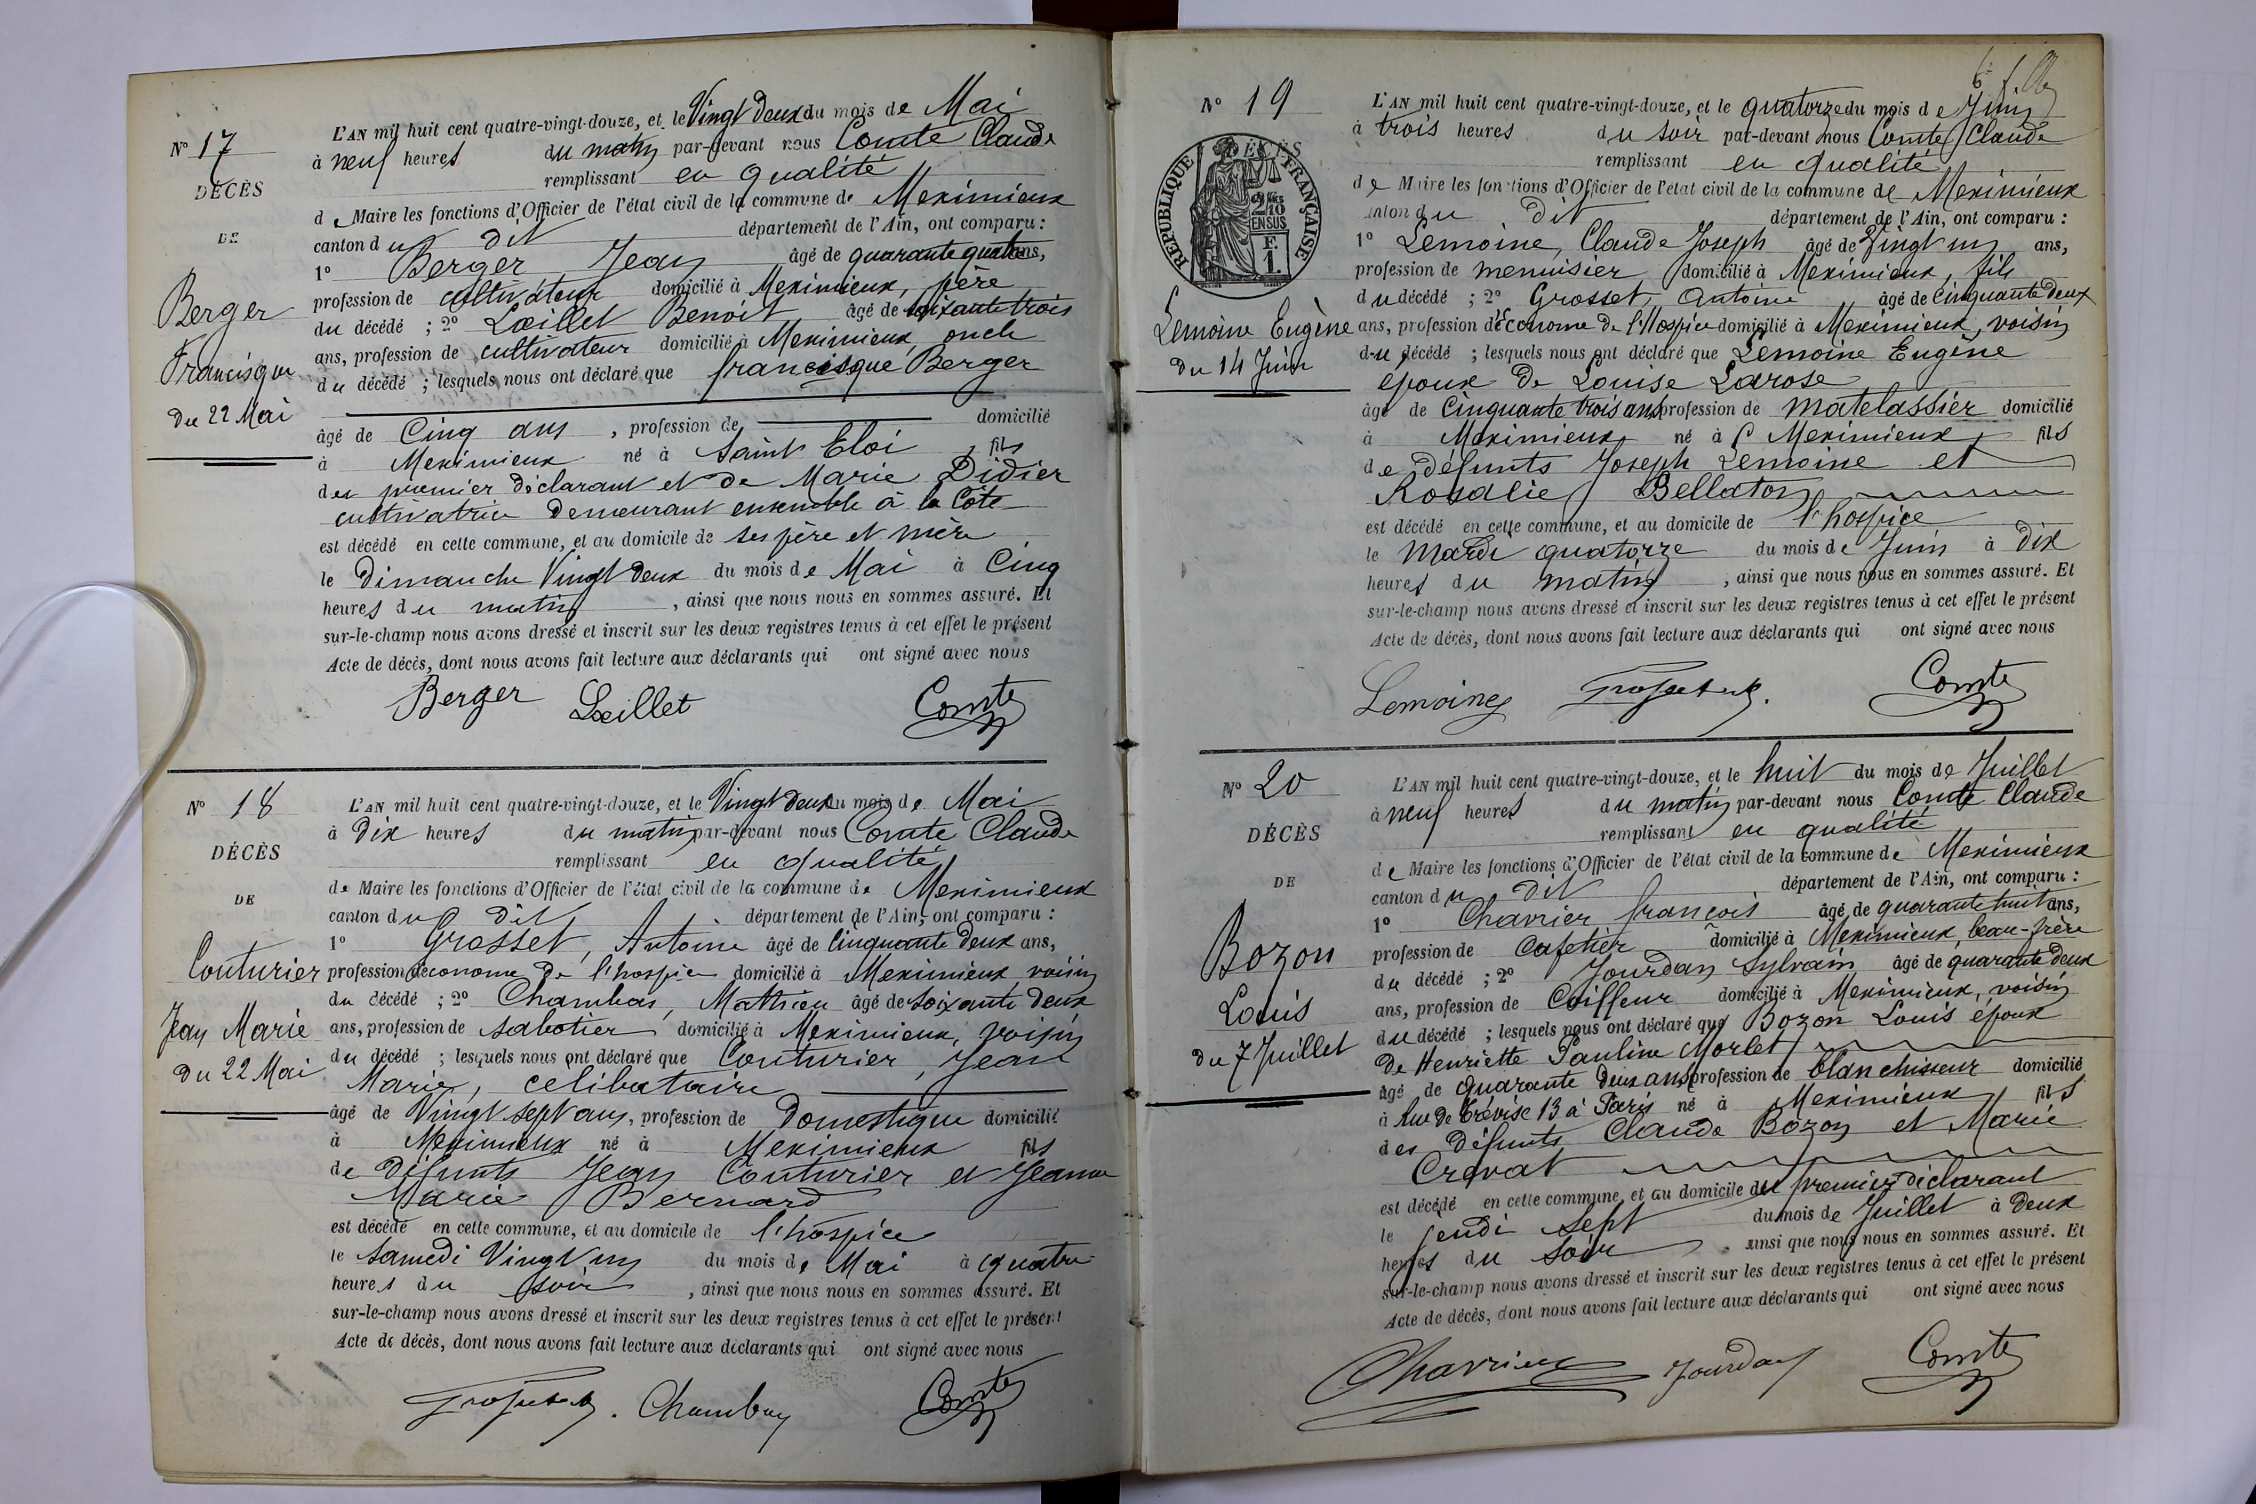 N° 17
DÉCÈS
DE
Berger
Francisque
du 22 Mai
L'AN mil huit cent quatre-vingt-douze, et le Vingt deux du mois de Mai
à neuf heures du matin par-devant nous Comte Claude
remplissant en qualité
de Maire les fonctions d'Officier de l'état civil de la commune de Meximieux
canton du dit département de l'Ain, ont comparu :
1° Berger Jean âgé de quarante quatre ans,
profession de cultivateur domicilié à Meximieux, père
du décédé ; 2° Lœillet Benoit âgé de soixante trois
ans, profession de cultivateur domicilié à Meximieux, oncle
du décédé ; lesquels nous ont déclaré que francisque Berger
âgé de Cinq ans, profession de domicilié
à Meximieux né à Saint Eloi, fils
du premier déclarant et de Marie Didier
cultivatrice demeurant ensemble à la Côte
est décédé en cette commune, et au domicile de ses père et mère
le Dimanche Vingt deux du mois de Mai à Cinq
heures du matin, ainsi que nous nous en sommes assuré. Et
sur-le-champ nous avons dressé et inscrit sur les deux registres tenus à cet effet le présent
Acte de décès, dont nous avons fait lecture aux déclarants qui ont signé avec nous
Berger Lœillet Comte
N° 18
DÉCÈS
DE
Couturier
Jean Marie
du 22 Mai
L'AN mil huit cent quatre-vingt-douze, et le Vingt deux du mois de Mai
à Dix heures du matin par-devant nous Comte Claude
remplissant en qualité
de Maire les fonctions d'Officier de l'état civil de la commune de Meximieux
canton du dit département de l'Ain, ont comparu :
1° Grosset, Antoine âgé de Cinquante deux ans,
profession d'économe de l'hospice domicilié à Meximieux voisin
du décédé ; 2° Chambas, Mathieu âgé de soixante deux
ans, profession de sabotier domicilié à Meximieux, voisin
du décédé ; lesquels nous ont déclaré que Couturier, Jean
Marie, célibataire
âgé de Vingt sept ans, profession de Domestique domicilié
à Meximieux né à Meximieux fils
de défunts Jean Couturier et Jeanne
Marie Bernard
est décédé en cette commune, et au domicile de l'hospice
le Samedi Vingt un du mois de Mai à quatre
heures du soir, ainsi que nous nous en sommes assuré. Et
sur-le-champ nous avons dressé et inscrit sur les deux registres tenus à cet effet le présent
Acte de décès, dont nous avons fait lecture aux déclarants qui ont signé avec nous
Chambas Comte
N° 19
DÉCÈS
RÉPUBLIQUE FRANÇAISE
2/10
EN SUS
F.
1.
Lemoine Eugène
du 14 Juin
L'AN mil huit cent quatre-vingt-douze, et le quatorze du mois de Juin
à trois heures du soir par-devant nous Comte Claude
remplissant en qualité
de Maire les fonctions d'Officier de l'état civil de la commune de Meximieux
canton du dit département de l'Ain, ont comparu :
1° Lemoine, Claude Joseph âgé de Vingt un ans,
profession de menuisier domicilié à Meximieux, fils
du décédé ; 2° Grosset, Antoine âgé de cinquante deux
ans, profession d'économe de l'Hospice domicilié à Meximieux, voisin
du décédé ; lesquels nous ont déclaré que Lemoine Eugène
époux de Louise Larose
âgé de Cinquante trois ans profession de matelassier domicilié
à Meximieux né à Meximieux, fils
de défunts Joseph Lemoine et
Rosalie Bellaton
est décédé en cette commune, et au domicile de l'hospice
le Mardi quatorze du mois de Juin à Dix
heures du matin, ainsi que nous nous en sommes assuré. Et
sur-le-champ nous avons dressé et inscrit sur les deux registres tenus à cet effet le présent
Acte de décès, dont nous avons fait lecture aux déclarants qui ont signé avec nous
Lemoine Comte
N° 20
DÉCÈS
DE
Bozon
Louis
du 7 Juillet
L'AN mil huit cent quatre-vingt-douze, et le huit du mois de Juillet
à neuf heures du matin par-devant nous Comte Claude
remplissant en qualité
de Maire les fonctions d'Officier de l'état civil de la commune de Meximieux
canton du dit département de l'Ain, ont comparu :
1° Chavrier françois âgé de quarante huit ans,
profession de Cafetier domicilié à Meximieux, beau-frère
du décédé ; 2° Jourdan Sylvain âgé de quarante deux
ans, profession de Coiffeur domicilié à Meximieux, voisin
du décédé ; lesquels nous ont déclaré que Bozon Louis époux
de Henriette Pauline Morlet
âgé de quarante deux ans profession de blanchisseur domicilié
à Rue de Trévise 13 à Paris né à Meximieux fils
des défunts Claude Bozon et Marie
Cravat
est décédé en cette commune, et au domicile du premier déclarant
le jeudi sept du mois de Juillet à deux
heures du soir, ainsi que nous nous en sommes assuré. Et
sur-le-champ nous avons dressé et inscrit sur les deux registres tenus à cet effet le présent
Acte de décès, dont nous avons fait lecture aux déclarants qui ont signé avec nous
Chavrier Jourdan Comte